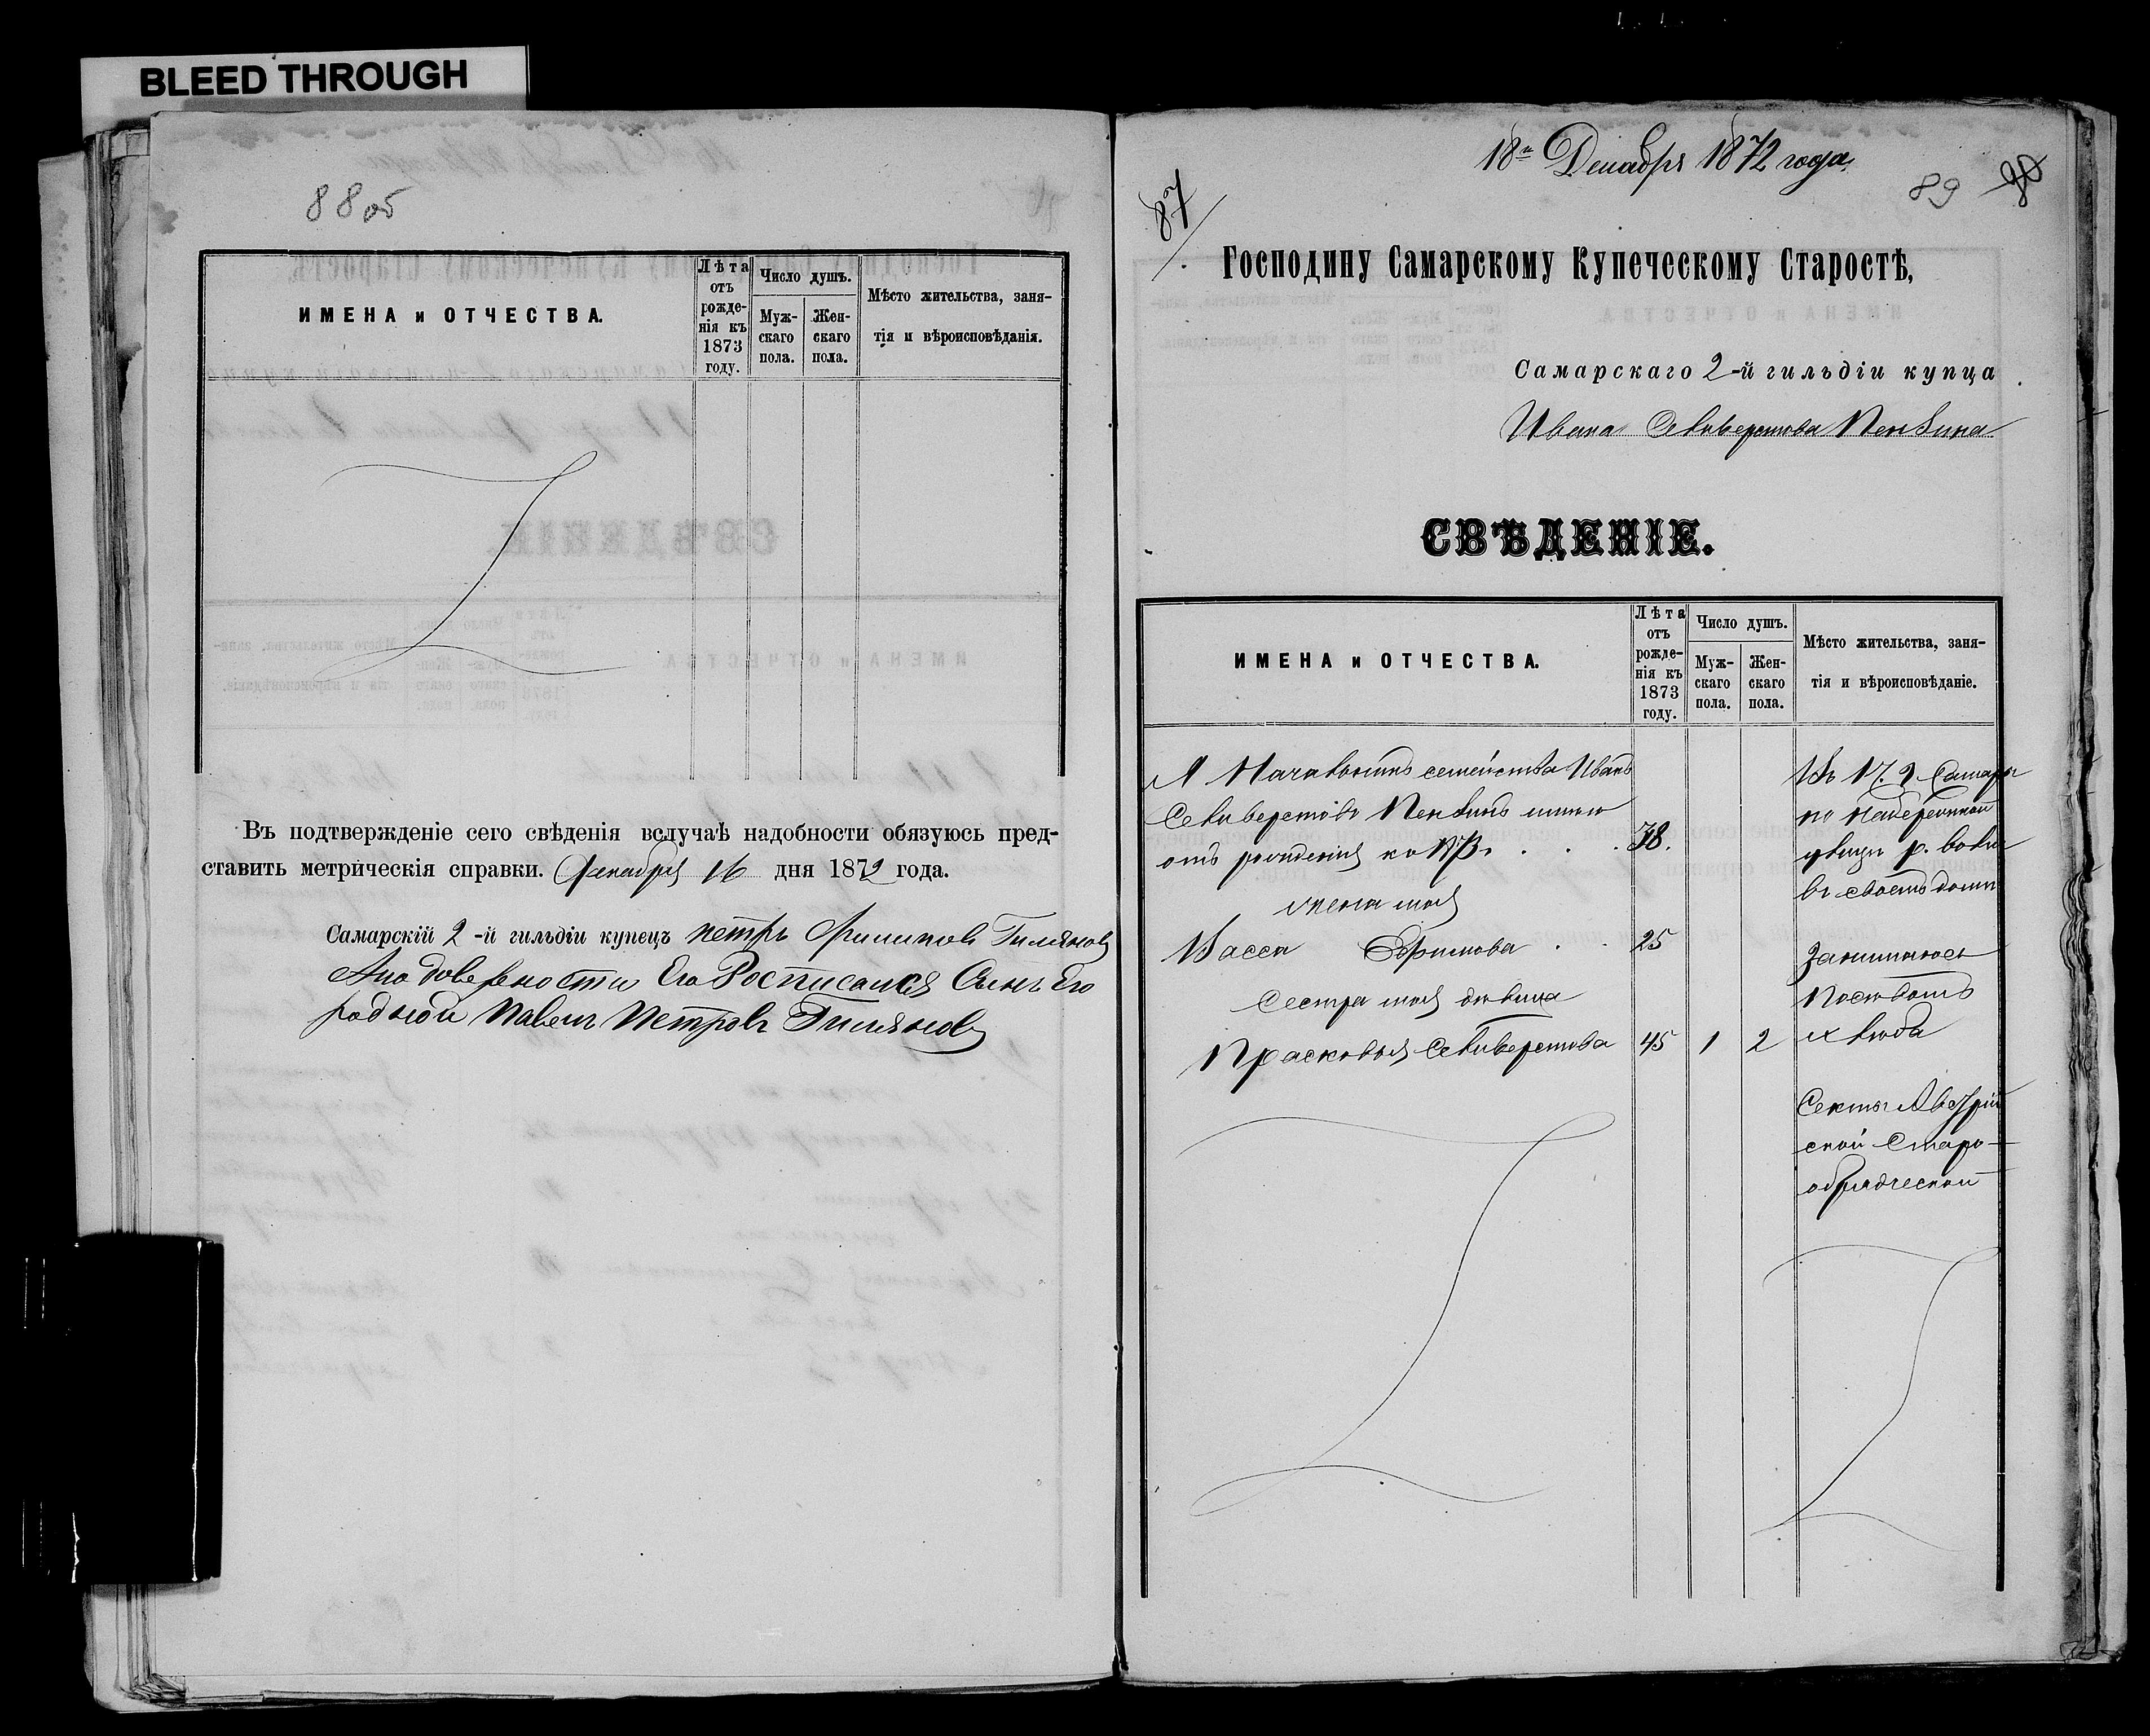 BLEED THROUGH
88 об
ИМЕНА и ОТЧЕСТВА.
Лѣта отъ рожде-нія къ 1873 году.
Число душъ.
Муж-скаго пола.
Жен-скаго пола.
Мѣсто жительства, заня-
тія и вѣроисповѣданія.
Въ подтвержденіе сего свѣденія вслучаѣ надобности обязуюсь пред-
ставить метрическія справки. Декабря 16 дня 1872 года.
Самарскій 2-й гильдіи купецъ петръ Филиповъ
Апо доверености Его Росписался Сынъ Его
родной Павелъ Петровъ
18го Декабря 1872 года.
87
89
Господину Самарскому Купеческому Старостѣ,
Самарскаго 2-й гильдіи купца
Ивана Селиверстова Пензина
СВѢДЕНІЕ.
ИМЕНА и ОТЧЕСТВА.
Лѣта отъ рожде-нія къ 1873 году.
Число душъ.
Муж-скаго пола.
Жен-скаго пола.
Мѣсто жительства, заня-
тія и вѣроисповѣданіе.
Я Начальникъ семейства Иванъ
Селиверстовъ Пензинъ имею
отъ рожденія къ 1873 г. . . . 38.
жена моя
Васса Ефимова . . 25
Сестра моя дѣвица
Прасковья Селиверстова 45 1 2
Въ г. Самаре
по набережной
улицы р. волги
въ своемъ доме
Занимаюсь
Посевомъ
хлеба
Секты Австрій
ской Старо-
обрядческой